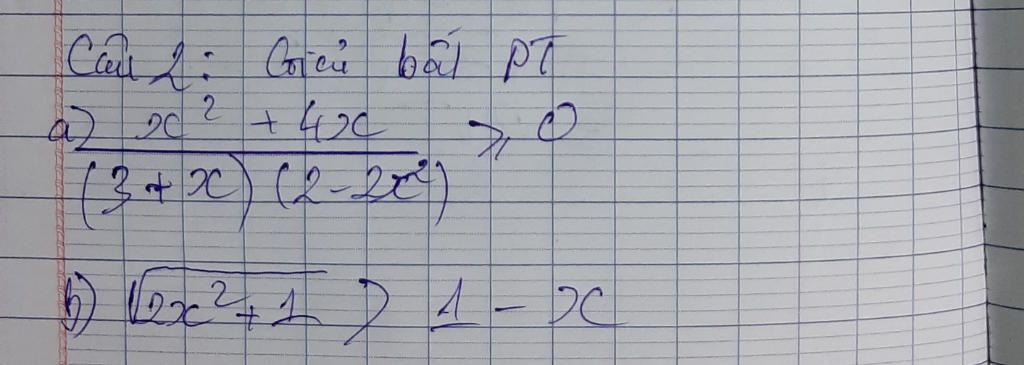 Câu 2: Giải bất PT
a) \frac{x² + 4x}{(3 + x)(2 - 2x²)} ⩾ 0
b) √(2x² + 1) > 1 - x